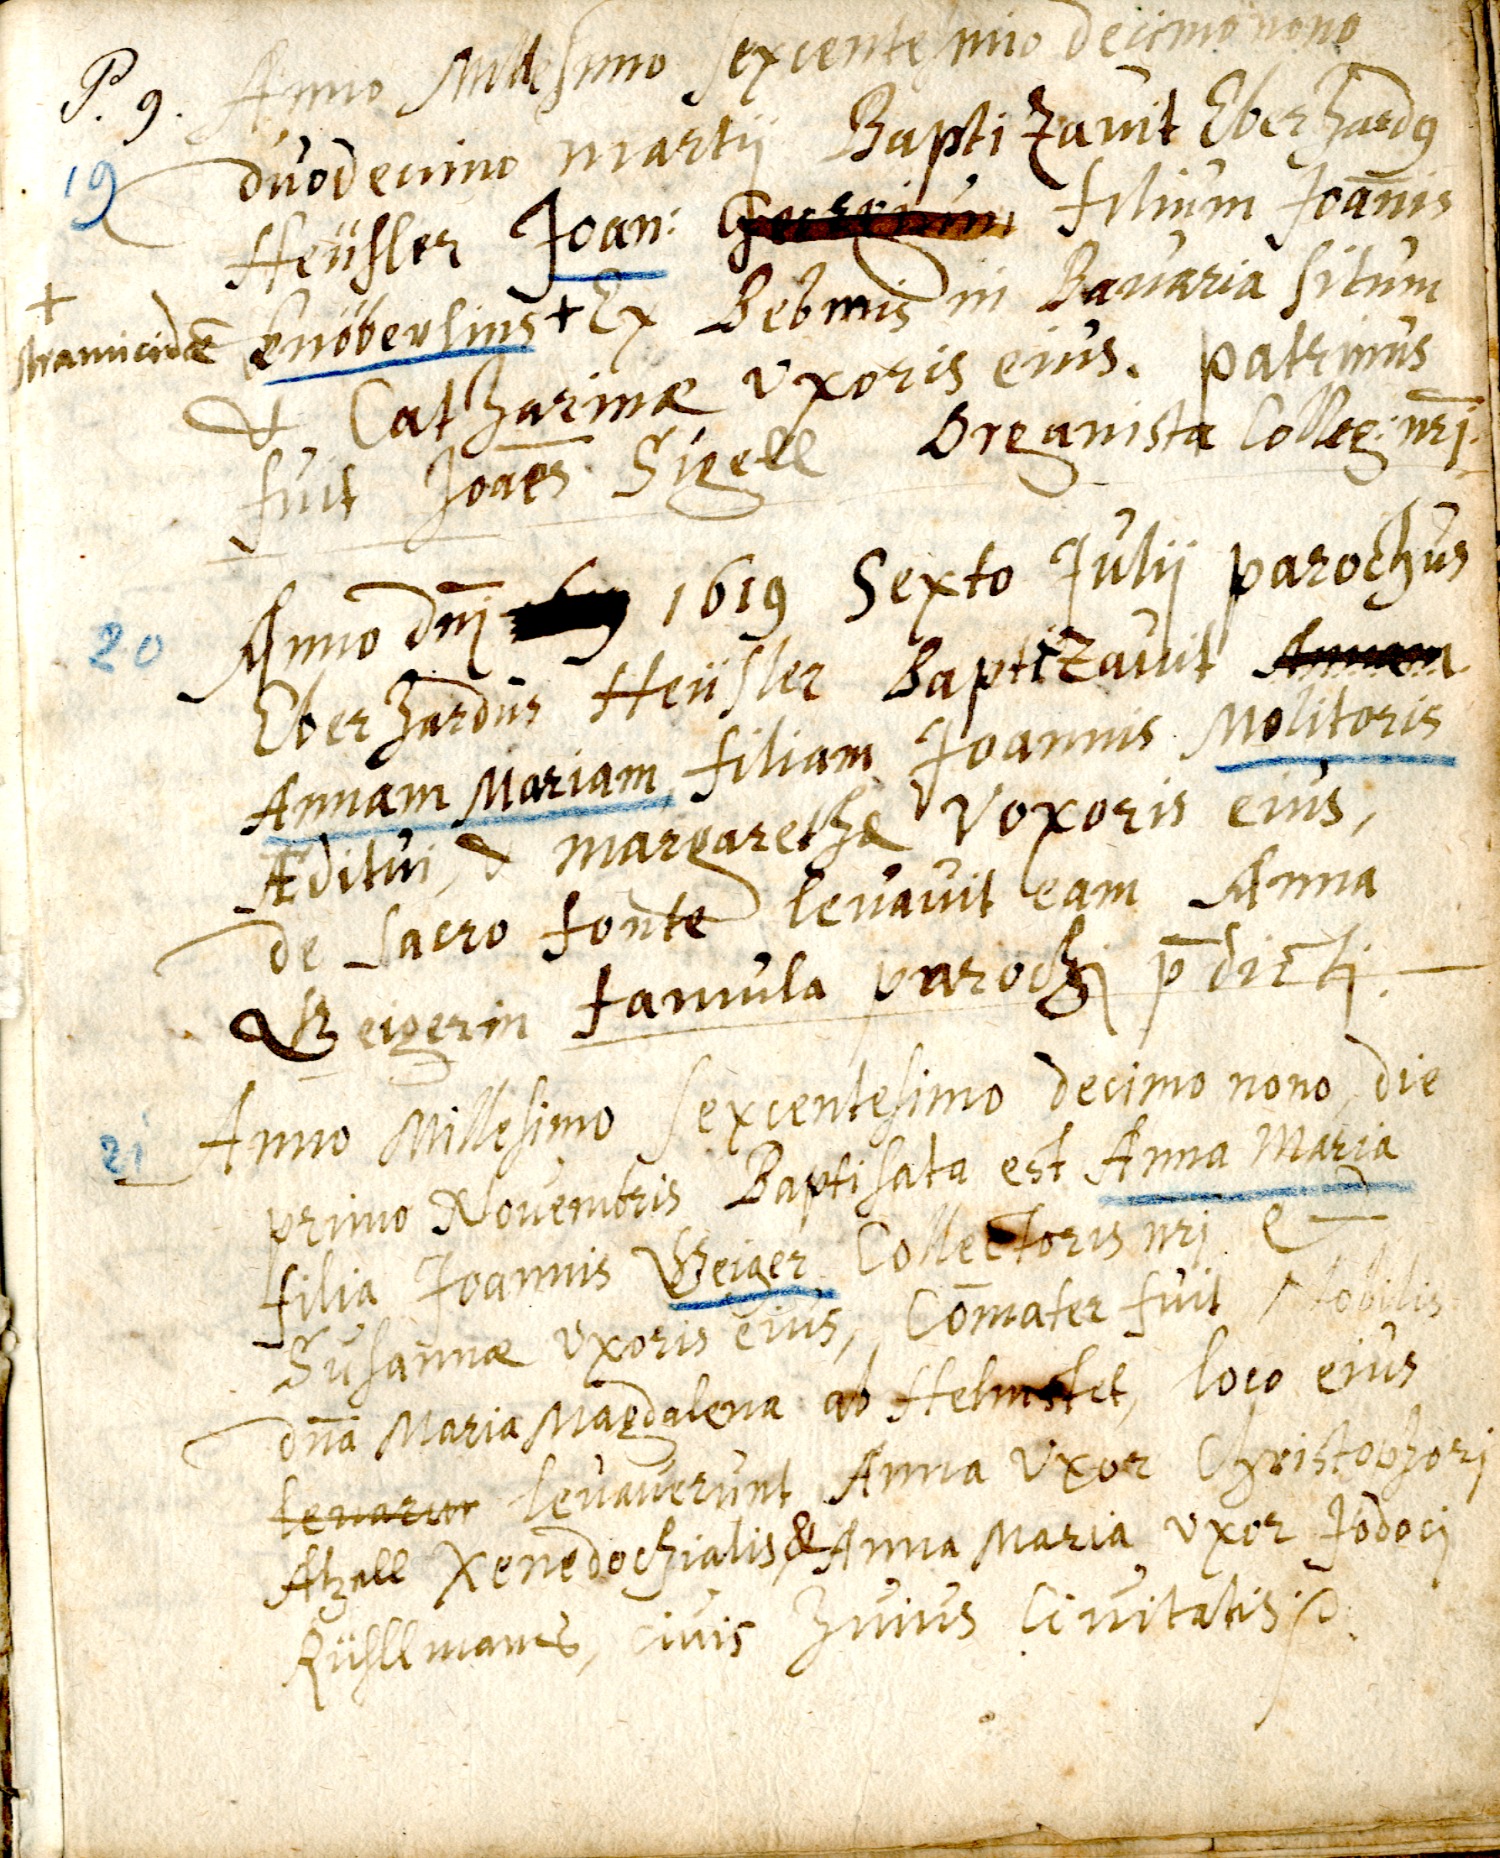 P. 9. Anno Millesimo sexcentesimo decimo nono
19 duodecimo martij Baptizavit Eberhardus
Heüsler Joan: filium Joānis
+ stramicidæ Knöberlins + Ex Bebmis in Bavaria situm
& Catharinæ Vxoris eius. patrinus
fuit Joāes Sigell Organista Colleg: nrj.
20 Anno dnj 1619 Sexto Julij parochus
Eberhardus Heüsler Baptizavit Annam
Annam Mariam filiam Joannis Molitoris
Æditui, & margarethæ Voxoris eius,
de sacro fonte levavit eam Anna
Geigerin famula parochj p̄dictj.
21 Anno Millesimo sexcentesimo decimo nono, die
primo Novembris Baptisata est Anna Maria
filia Joannis Geiger Collectoris nrj &
Susannæ Vxoris eius, Com̄ater fuit Nobilis
dn̄a Maria Magdalena ab Helmstet, loco eius
levarunt levaverunt Anna Vxor Christophorj
Atzall Xenedochialis, & Anna Maria Vxor Jodocj
Rüssllmans, civis huius Civitatis